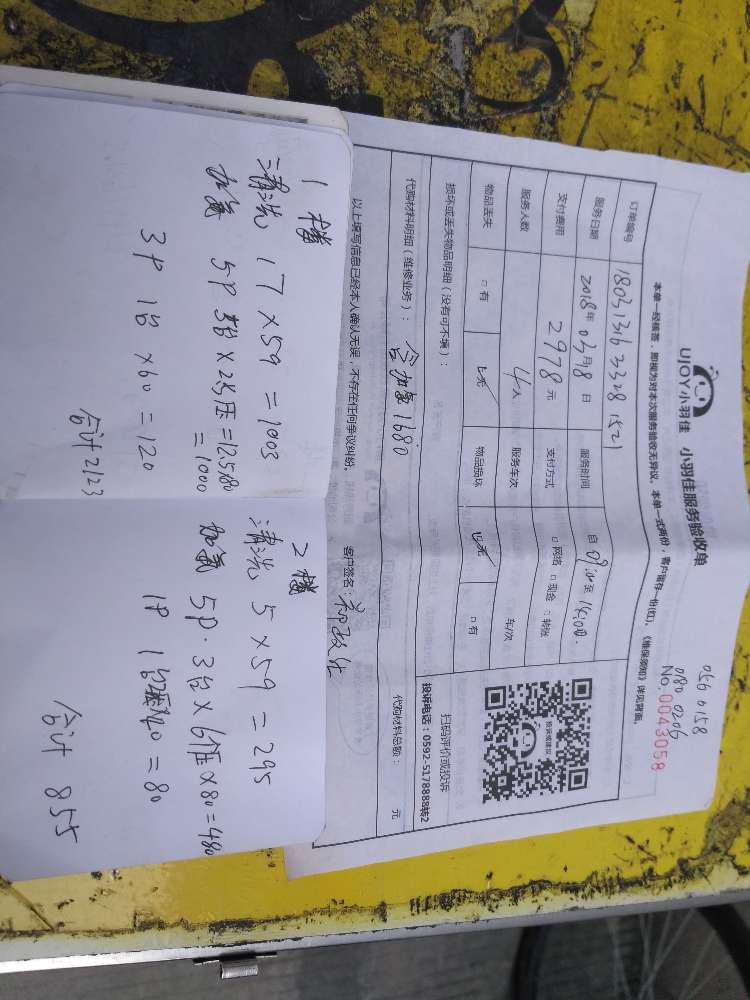 UJOY小羽佳 小羽佳服务验收单
056 0158
080 0206
No. 0043058
本单一经核签，即视为对本次服务验收无异议。本单一式两份，客户留存一份(红)。《维保须知》详见背面。
订单编号 1803131633281521
服务日期 2018年03月18日 服务时间 自09:00至14:00
支付费用 2978元 支付方式 □网络 □现金 □转账
服务人数 4人 服务车次 车/次
物品丢失 □有 ☑无 物品损坏 ☑无 □有
损坏或丢失物品明细（没有可不填）：
扫码评价或投诉
投诉电话：0592-5178888转2
代购材料明细（维修业务）： 含加氟1680 代购材料总额： 元
以上填写信息已经本人确认无误，不存在任何争议纠纷。 客户签名：
1楼
清洗 17×59=1003
加氟 5P
=1000
3P 1台×60=120
合计2123
2楼
清洗 5×59=295
加氟 5P·3台×6压×80=480
1P 1台 =80
合计 855